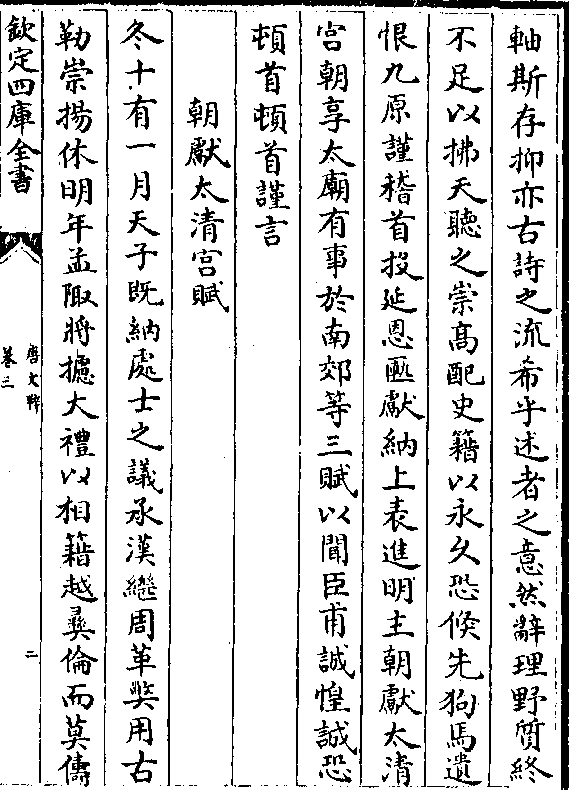 軸斯存抑亦古詩之流希乎述者之意然辭理野質終
不足以拂天聽之崇髙配史籍以永久恐倐先狗馬遺
恨九原謹稽首投延恩匭獻納上表進明主朝獻太清
宫朝享太廟有事於南郊等三賦以聞臣甫誠惶誠恐
頓首頓首謹言
朝獻太清宫賦
冬十有一月天子既納處士之議承漢繼周革獘用古
勒崇揚休明年孟陬將攄大禮以相籍越彛倫而莫儔
欽定四庫全書
唐文粹
卷三
二